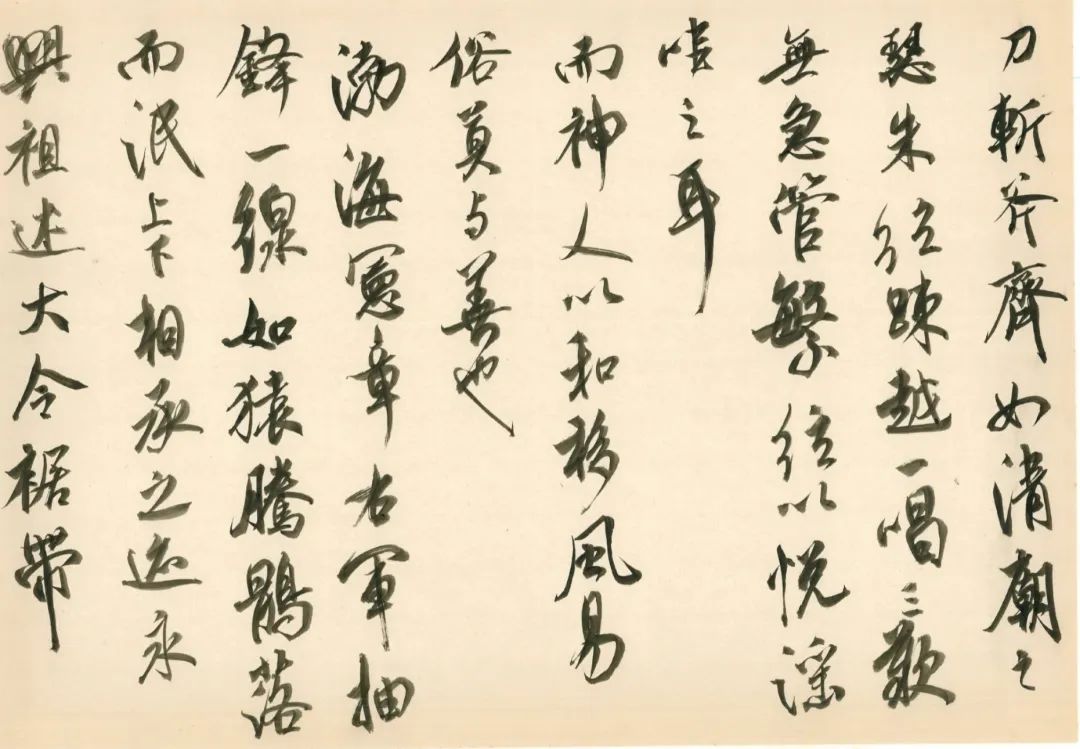 刀斬斧齊如清廟之
瑟朱弦疎越一唱三歎
無急管繁弦以悦淫
哇之耳
而神人以和移風易
俗莫与善也
渤海憲章右軍抽
鋒一線如猿騰鶻落
而泯上下相承之迹永
興祖述大令裾帶